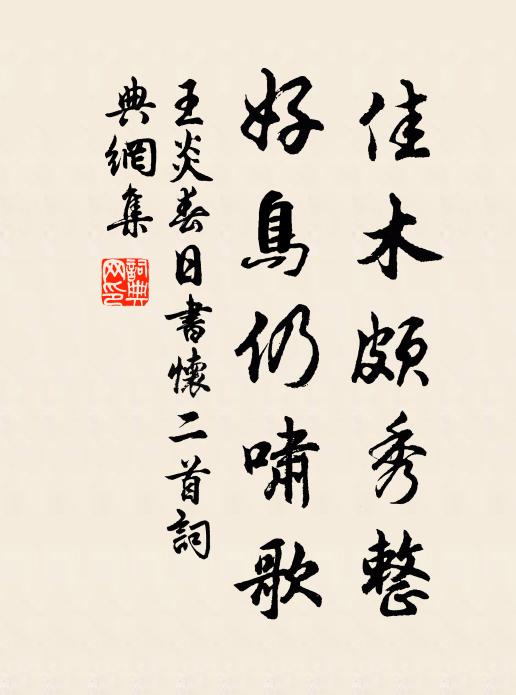 佳木頗秀整
好鳥仍嘯歌
王炎春日書懷二首詞
典網集
詞典網印